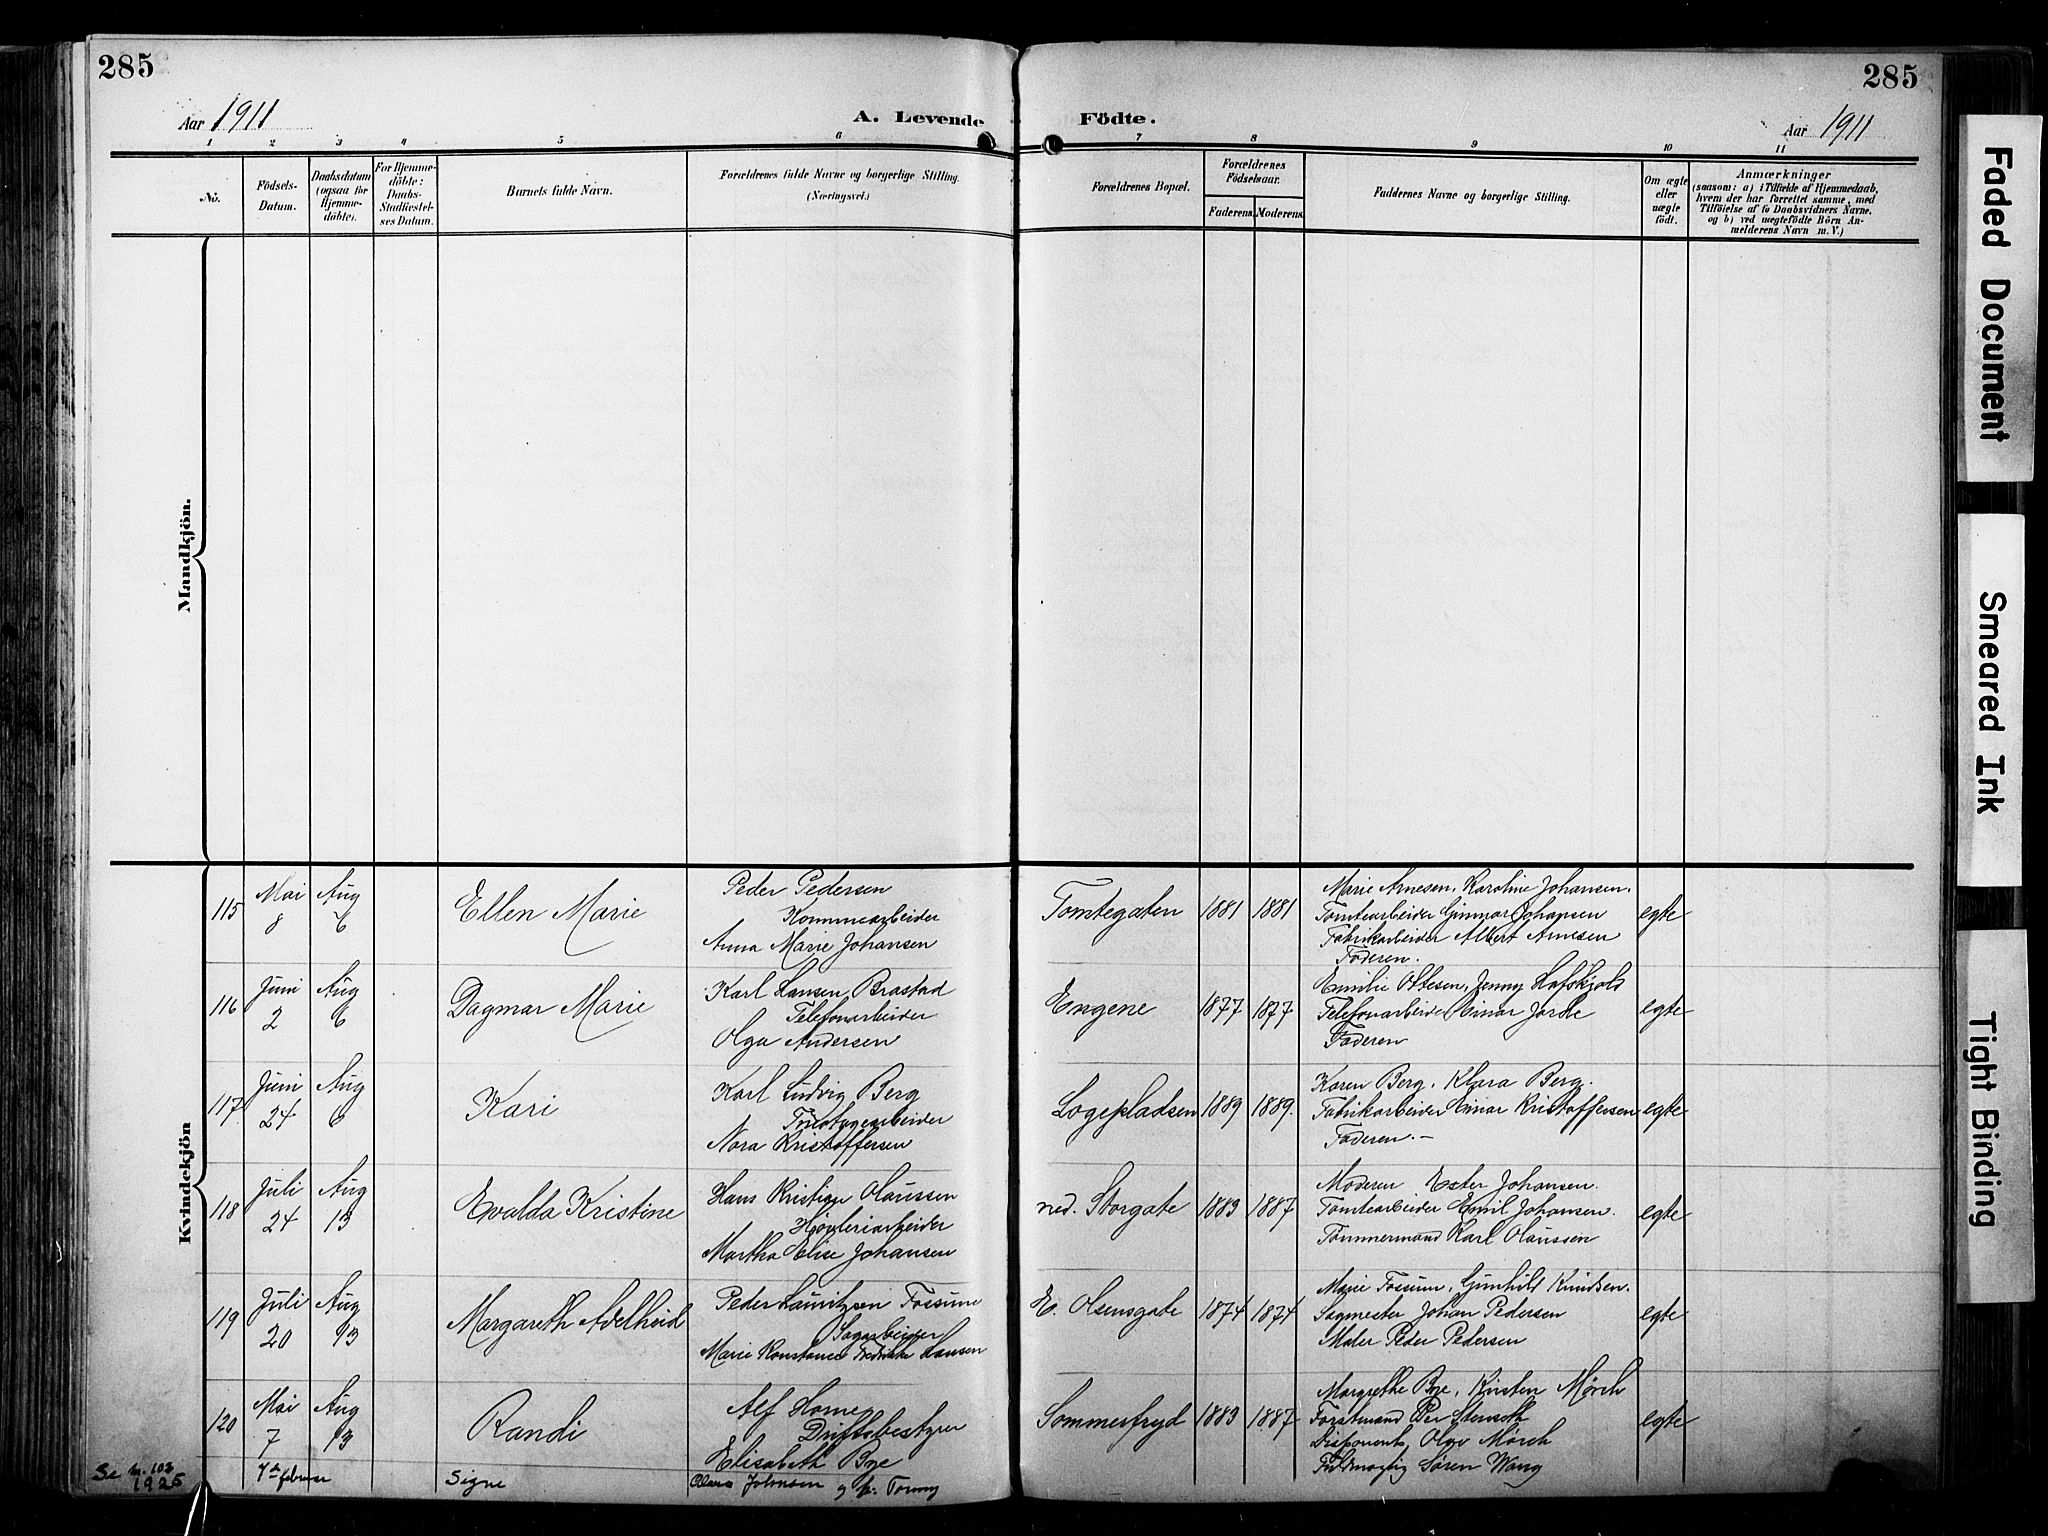 285
285
Aar 1911
A. Levende Födte.
Aar 1911
1 2 3 4 5 6 7 8 9 10 11
No.
Födsels-Datum.
Daabsdatum (ogsaa for Hjemmedöbte).
For Hjemmedöbte: Daabs-Stadfæstelses Datum.
Barnets fulde Navn.
Forældrenes fulde Navne og borgerlige Stilling. (Næringsvei.)
Forældrenes Bopæl.
Forældrenes Födselsaar.
Faderens. Moderens.
Faddernes Navne og borgerlige Stilling.
Om ægte eller uægte födt.
Anmærkninger
(saasom: a) i Tilfælde af Hjemmedaab,
hvem der har forrettet samme, med
Tilföielse af to Daabsvidners Navne,
og b) ved uegtefödte Börn Anmelderens Navn m. V.)
Mandkjön.
Kvindekjön
115 Mai 8 Aug 6
Ellen Marie
Peder Pedersen
Anna Marie Johansen
Tomtegaten 1881 1881
Marie Arnesen, Karoline Johansen.
Tomtearbeider Johansen
Fabrikarbeider Albert Arnesen
Faderen.
egte
116 Juni 2 Aug 6
Dagmar Marie
Karl Hansen Brastad
Telefonarbeider
Olga Andersen
Engene 1877 1877
Emilie Ottesen, Jenny
Telefonarbeider Einar
Faderen
egte
117. Juni 24 Aug 6
Kari
Karl Ludvig Berg
Nora Kristoffersen
Logepladsen 1889 1889.
Karen Berg. Klara Berg.
Fabrikarbeider Einar Kristoffersen
Faderen. –
egte
118 Juli 24 Aug 13
Evalda Kristine
Hans Kristian Olaussen
Høvleriarbeider
Martha Elise Johansen
ned. Storgate 1883 1887
Moderen Ester Johansen.
Tomtearbeider Emil Johansen.
Tømmermand Karl Olaussen
egte
119 Juli 20 Aug 13
Margareth Adelheid
Peder Lauritzsen Fossum
Sagarbeider
Marie Konstance Fredrikke Hansen
E. Olsensgate 1874 1874
Marie Fossum, Gunhild Knudsen.
Sagmester Johan Pedersen
Maler Peder Pedersen
egte
120 Mai 7 Aug 13
Randi
Alf Horne
Driftsbestyrer
Elisabeth Bye
Sommerfryd 1883 1887
Margrethe Bye, Kirsten Mørch
Forstmand Per Stenseth
Disponent Olav Mørch
Fuldmægtig Søren Wang
egte
Se n. 103 1925
Signe
Johansen
Faded Document
Smeared Ink
Tight Binding